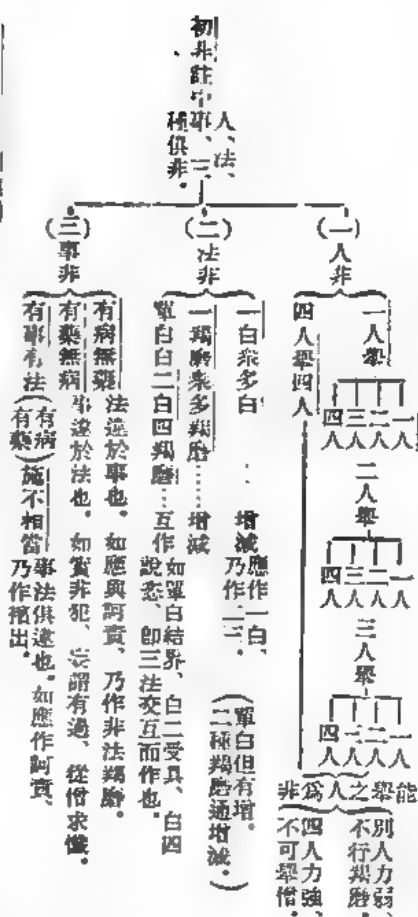 初非註中
人、法、
事、三
種俱非。
(一)人非
一人舉
一人
二人
三人
四人
二人舉
一人
二人
三人
四人
三人舉
一人
二人
三人
四人
四人舉四人
能舉之人為非
別人力弱、
不行羯磨。
四人力強
不可舉僧。
(二)法非
一白眾多白……增減
應作一白、
乃作二三。
(單白但有增。
二種羯磨通增減。)
一羯磨眾多羯磨……增減
單白白二白四羯磨……互作
如單白結界、白二受具、白四
說恣、即三法交互而作也。
(三)事非
有病無藥
法違於事也。如應與訶責、乃作非法羯磨。
有藥無病
事違於法也。如實非犯、妄謂有過、從僧求懺。
有事有法(有病有藥)施不相當
事法俱違也。如應作訶責、
乃作擯出。